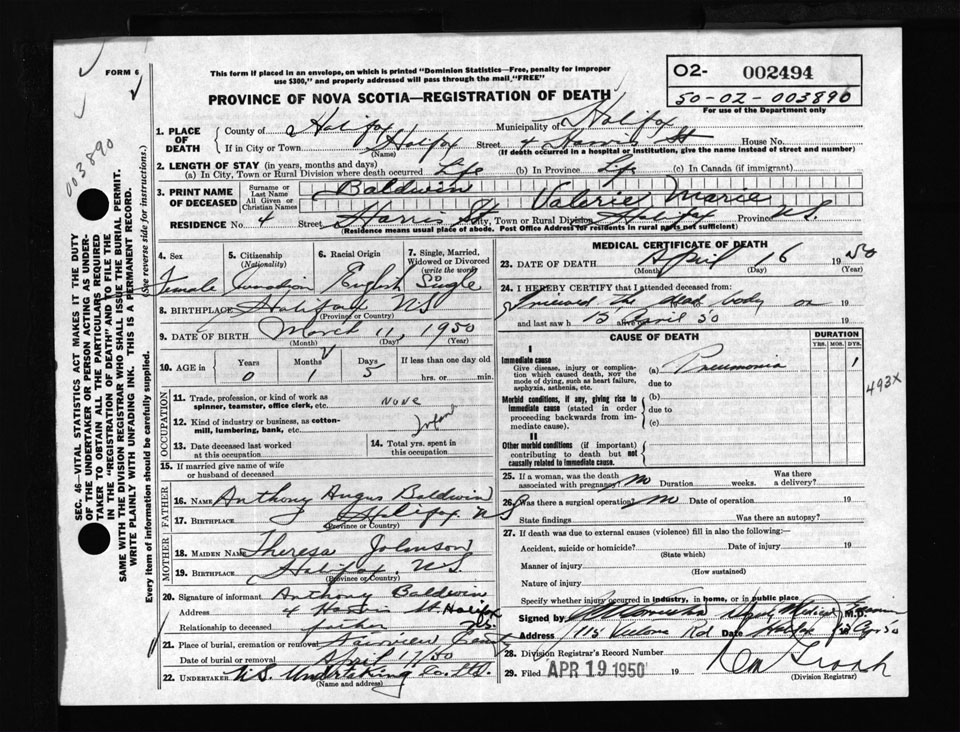 FORM 6
This form if placed in an envelope, on which is printed "Dominion Statistics—Free, penalty for improper
use $300," and properly addressed will pass through the mail "FREE"
O2- 002494
50-02-003890
For use of the Department only
PROVINCE OF NOVA SCOTIA—REGISTRATION OF DEATH
003890
1. PLACE OF DEATH
County of Halifax Municipality of Halifax
If in City or Town Halifax Street 4 Harris St House No.
(Name) (If death occurred in a hospital or institution, give the name instead of street and number)
2. LENGTH OF STAY (in years, months and days)
(a) In City, Town or Rural Division where death occurred Life (b) In Province Life (c) In Canada (if immigrant)
3. PRINT NAME OF DECEASED
Surname or Last Name Baldwin
All Given or Christian Names Valerie Marie
RESIDENCE No. 4 Street Harris St. City, Town or Rural Division Halifax Province N.S.
(Residence means usual place of abode. Post Office Address for residents in rural parts not sufficient)
4. Sex Female
5. Citizenship (Nationality) Canadian
6. Racial Origin English
7. Single, Married, Widowed or Divorced (write the word) Single
8. BIRTHPLACE Halifax NS
(Province or Country)
9. DATE OF BIRTH March 11, 1950
(Month) (Day) (Year)
10. AGE in Years 0 Months 1 Days 5 If less than one day old
hrs. or min.
OCCUPATION
11. Trade, profession, or kind of work as
spinner, teamster, office clerk, etc. none
12. Kind of industry or business, as cotton-
mill, lumbering, bank, etc.
13. Date deceased last worked
at this occupation
14. Total yrs. spent in
this occupation
15. If married give name of wife
or husband of deceased
FATHER
16. NAME Anthony Angus Baldwin
17. BIRTHPLACE Halifax NS
(Province or Country)
MOTHER
18. MAIDEN NAME Theresa Johnson
19. BIRTHPLACE Halifax, N.S.
(Province or Country)
20. Signature of informant Anthony Baldwin
Address 4 Harris St. Halifax
Relationship to deceased father N.S.
21. Place of burial, cremation or removal Fairview Cemt
Date of burial or removal April 17/50
22. UNDERTAKER N.S. Undertaking Co. Ltd.
(Name and address)
MEDICAL CERTIFICATE OF DEATH
23. DATE OF DEATH April 16 1950
(Month) (Day) (Year)
24. I HEREBY CERTIFY that I attended deceased from:
I viewed the dead body on 19
and last saw h alive on 19
CAUSE OF DEATH
DURATION
YRS. MOS. DYS.
I
Immediate cause
Give disease, injury or complica-
tion which caused death, NOT the
mode of dying, such as heart failure,
asphyxia, asthenia, etc.
(a) Pneumonia 1
due to
493X
Morbid conditions, if any, giving rise to
immediate cause (stated in order
proceeding backwards from im-
mediate cause).
(b)
due to
(c)
II
Other morbid conditions (if important)
contributing to death but not
causally related to immediate cause.
25. If a woman, was the death
associated with pregnancy? no Duration weeks. Was there
a delivery?
26. Was there a surgical operation? no Date of operation 19
State findings Was there an autopsy?
27. If death was due to external causes (violence) fill in also the following:—
Accident, suicide or homicide? Date of injury 19
(State which)
Manner of injury
(How sustained)
Nature of injury
Specify whether injury occurred in industry, in home, or in public place
Signed by Medical M.D.
Address 115 Rd Date Halifax
28. Division Registrar's Record Number
29. Filed APR 19 1950 19
(Division Registrar)
SEC. 46—VITAL STATISTICS ACT MAKES IT THE DUTY
OF THE UNDERTAKER OR PERSON ACTING AS UNDER-
TAKER TO OBTAIN ALL THE PARTICULARS REQUIRED
IN THE "REGISTRATION OF DEATH" AND TO FILE THE
SAME WITH THE DIVISION REGISTRAR WHO SHALL ISSUE THE BURIAL PERMIT.
WRITE PLAINLY WITH UNFADING INK. THIS IS A PERMANENT RECORD.
Every item of information should be carefully supplied. (See reverse side for instructions.)